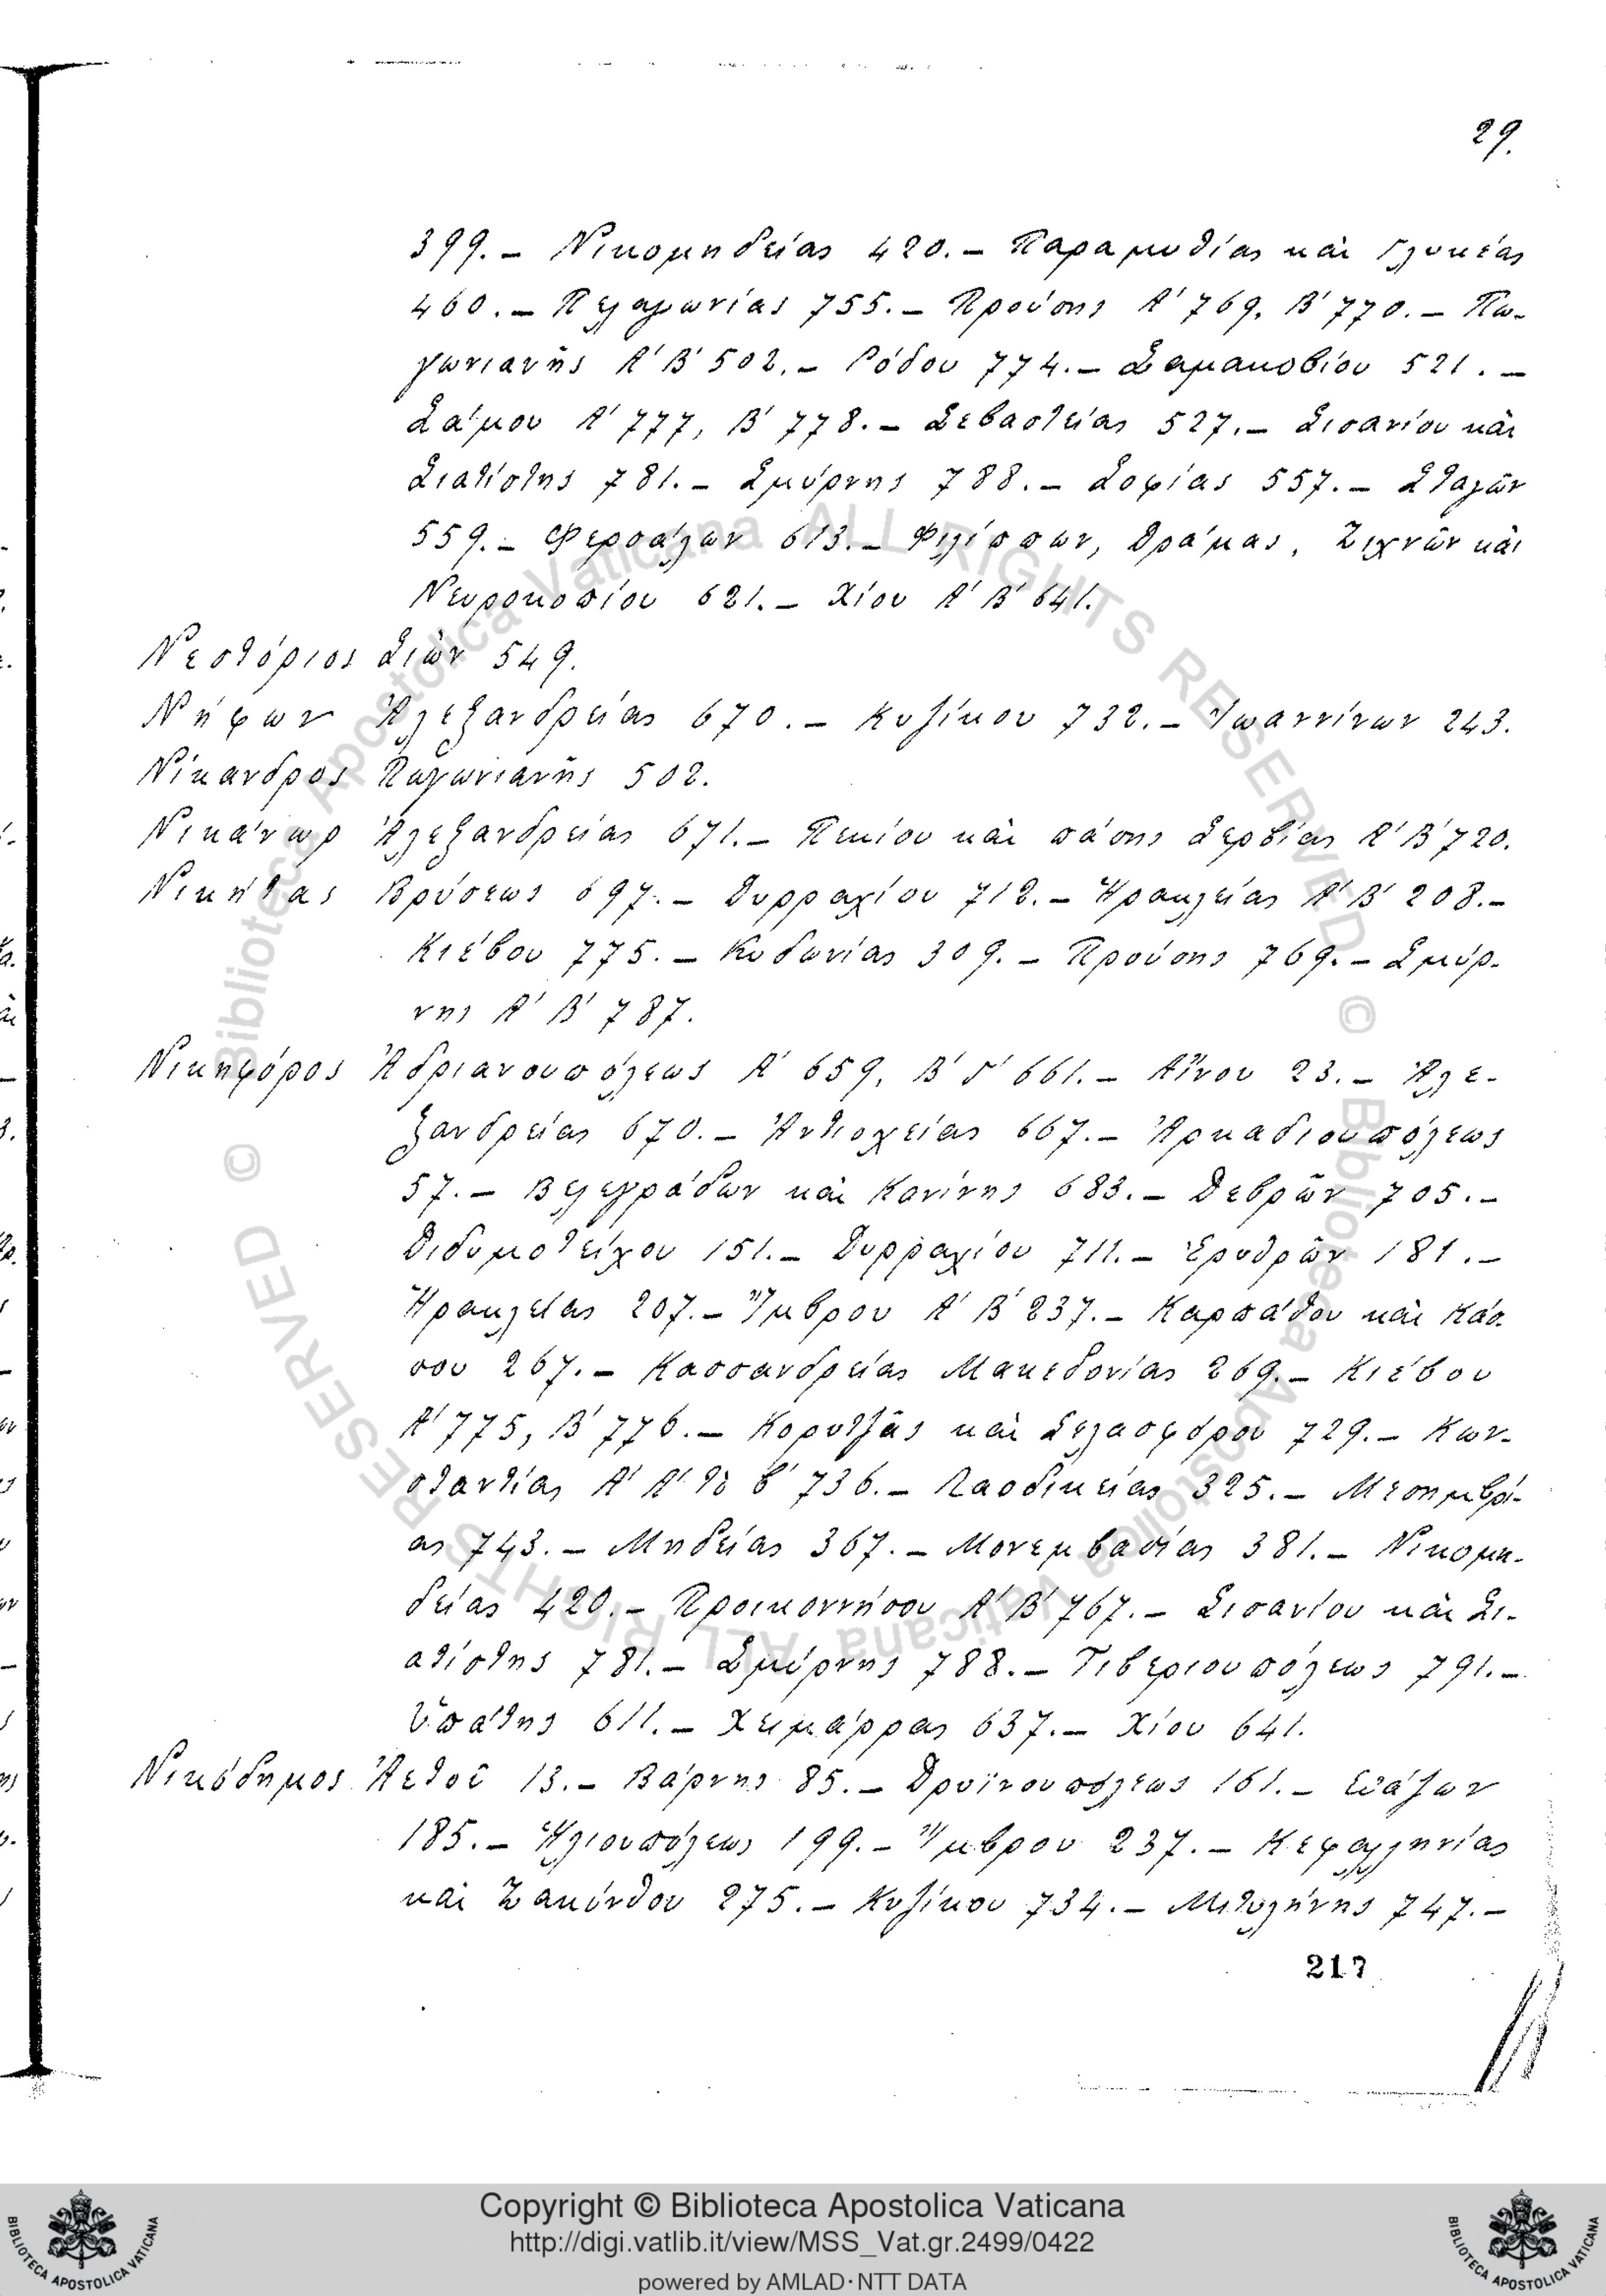 29.
399.– Νικομηδείας 420.– Παραμυθίας καὶ Γλυκέας
460.– Πελαγωνίας 755.– Προύσης Α΄ 769, Β΄ 770.– Πω-
γωνιανῆς Α΄ Β΄ 502.– Ρόδου 774.– Σαμακοβίου 521.–
Σάμου Α΄ 777, Β΄ 778.– Σεβαστείας 527.– Σισανίου καὶ
Σιατίστης 781.– Σμύρνης 788.– Σοφίας 557.– Σταγῶν
559.– Φερσάλων 613.– Φιλίππων, Δράμας, Ζιχνῶν καὶ
Νευροκοπίου 621.– Χίου Α΄ Β΄ 641.
Νεστόριος Σιὼν 549.
Νήφων Ἀλεξανδρείας 670.– Κυζίκου 732.– Ἰωαννίνων 243.
Νίκανδρος Πωγωνιανῆς 502.
Νικάνωρ Ἀλεξανδρείας 671.– Πεκίου καὶ πάσης Σερβίας Α΄ Β΄ 720.
Νικήτας Βρύσεως 697.– Δυρραχίου 712.– Ἡρακλείας Α΄ Β΄ 208.–
Κιέβου 775.– Κυδωνίας 309.– Προύσης 769.– Σμύρ-
νης Α΄ Β΄ 787.
Νικηφόρος Ἀδριανουπόλεως Α΄ 659, Β΄ Γ΄ 661.– Αἴνου 23.– Ἀλε-
ξανδρείας 670.– Ἀντιοχείας 667.– Ἀρκαδιουπόλεως
57.– Βελεγράδων καὶ Κανίνης 683.– Δεβρῶν 705.–
Διδυμοτείχου 151.– Δυρραχίου 711.– Ἐρυθρῶν 181.–
Ἡρακλείας 207.– Ἴμβρου Α΄ Β΄ 237.– Καρπάθου καὶ Κάσ-
σου 267.– Κασσανδρείας Μακεδονίας 269.– Κιέβου
Α΄ 775, Β΄ 776.– Κορυτζᾶς καὶ Σελασφόρου 729.– Κων-
σταντίας Α΄ Α΄ τὸ β΄ 736.– Λαοδικείας 325.– Μεσημβρί-
ας 743.– Μηδείας 367.– Μονεμβασίας 381.– Νικομη-
δείας 420.– Προικοννήσου Α΄ Β΄ 767.– Σισανίου καὶ Σι-
ατίστης 781.– Σμύρνης 788.– Τιβεριουπόλεως 791.–
Ὑπάτης 611.– Χειμάρρας 637.– Χίου 641.
Νικόδημος Ἀετοῦ 13.– Βάρνης 85.– Δρυϊνουπόλεως 161.– Εὐάζων
185.– Ἡλιουπόλεως 199.– Ἴμβρου 237.– Κεφαλληνίας
καὶ Ζακύνθου 275.– Κυζίκου 734.– Μιτυλήνης 747.–
217
© Biblioteca Apostolica Vaticana ALL RIGHTS RESERVED © Biblioteca Apostolica Vaticana ALL RIGHTS RESERVED
Copyright © Biblioteca Apostolica Vaticana
http://digi.vatlib.it/view/MSS_Vat.gr.2499/0422
powered by AMLAD·NTT DATA
BIBLIOTECA APOSTOLICA VATICANA
BIBLIOTECA APOSTOLICA VATICANA